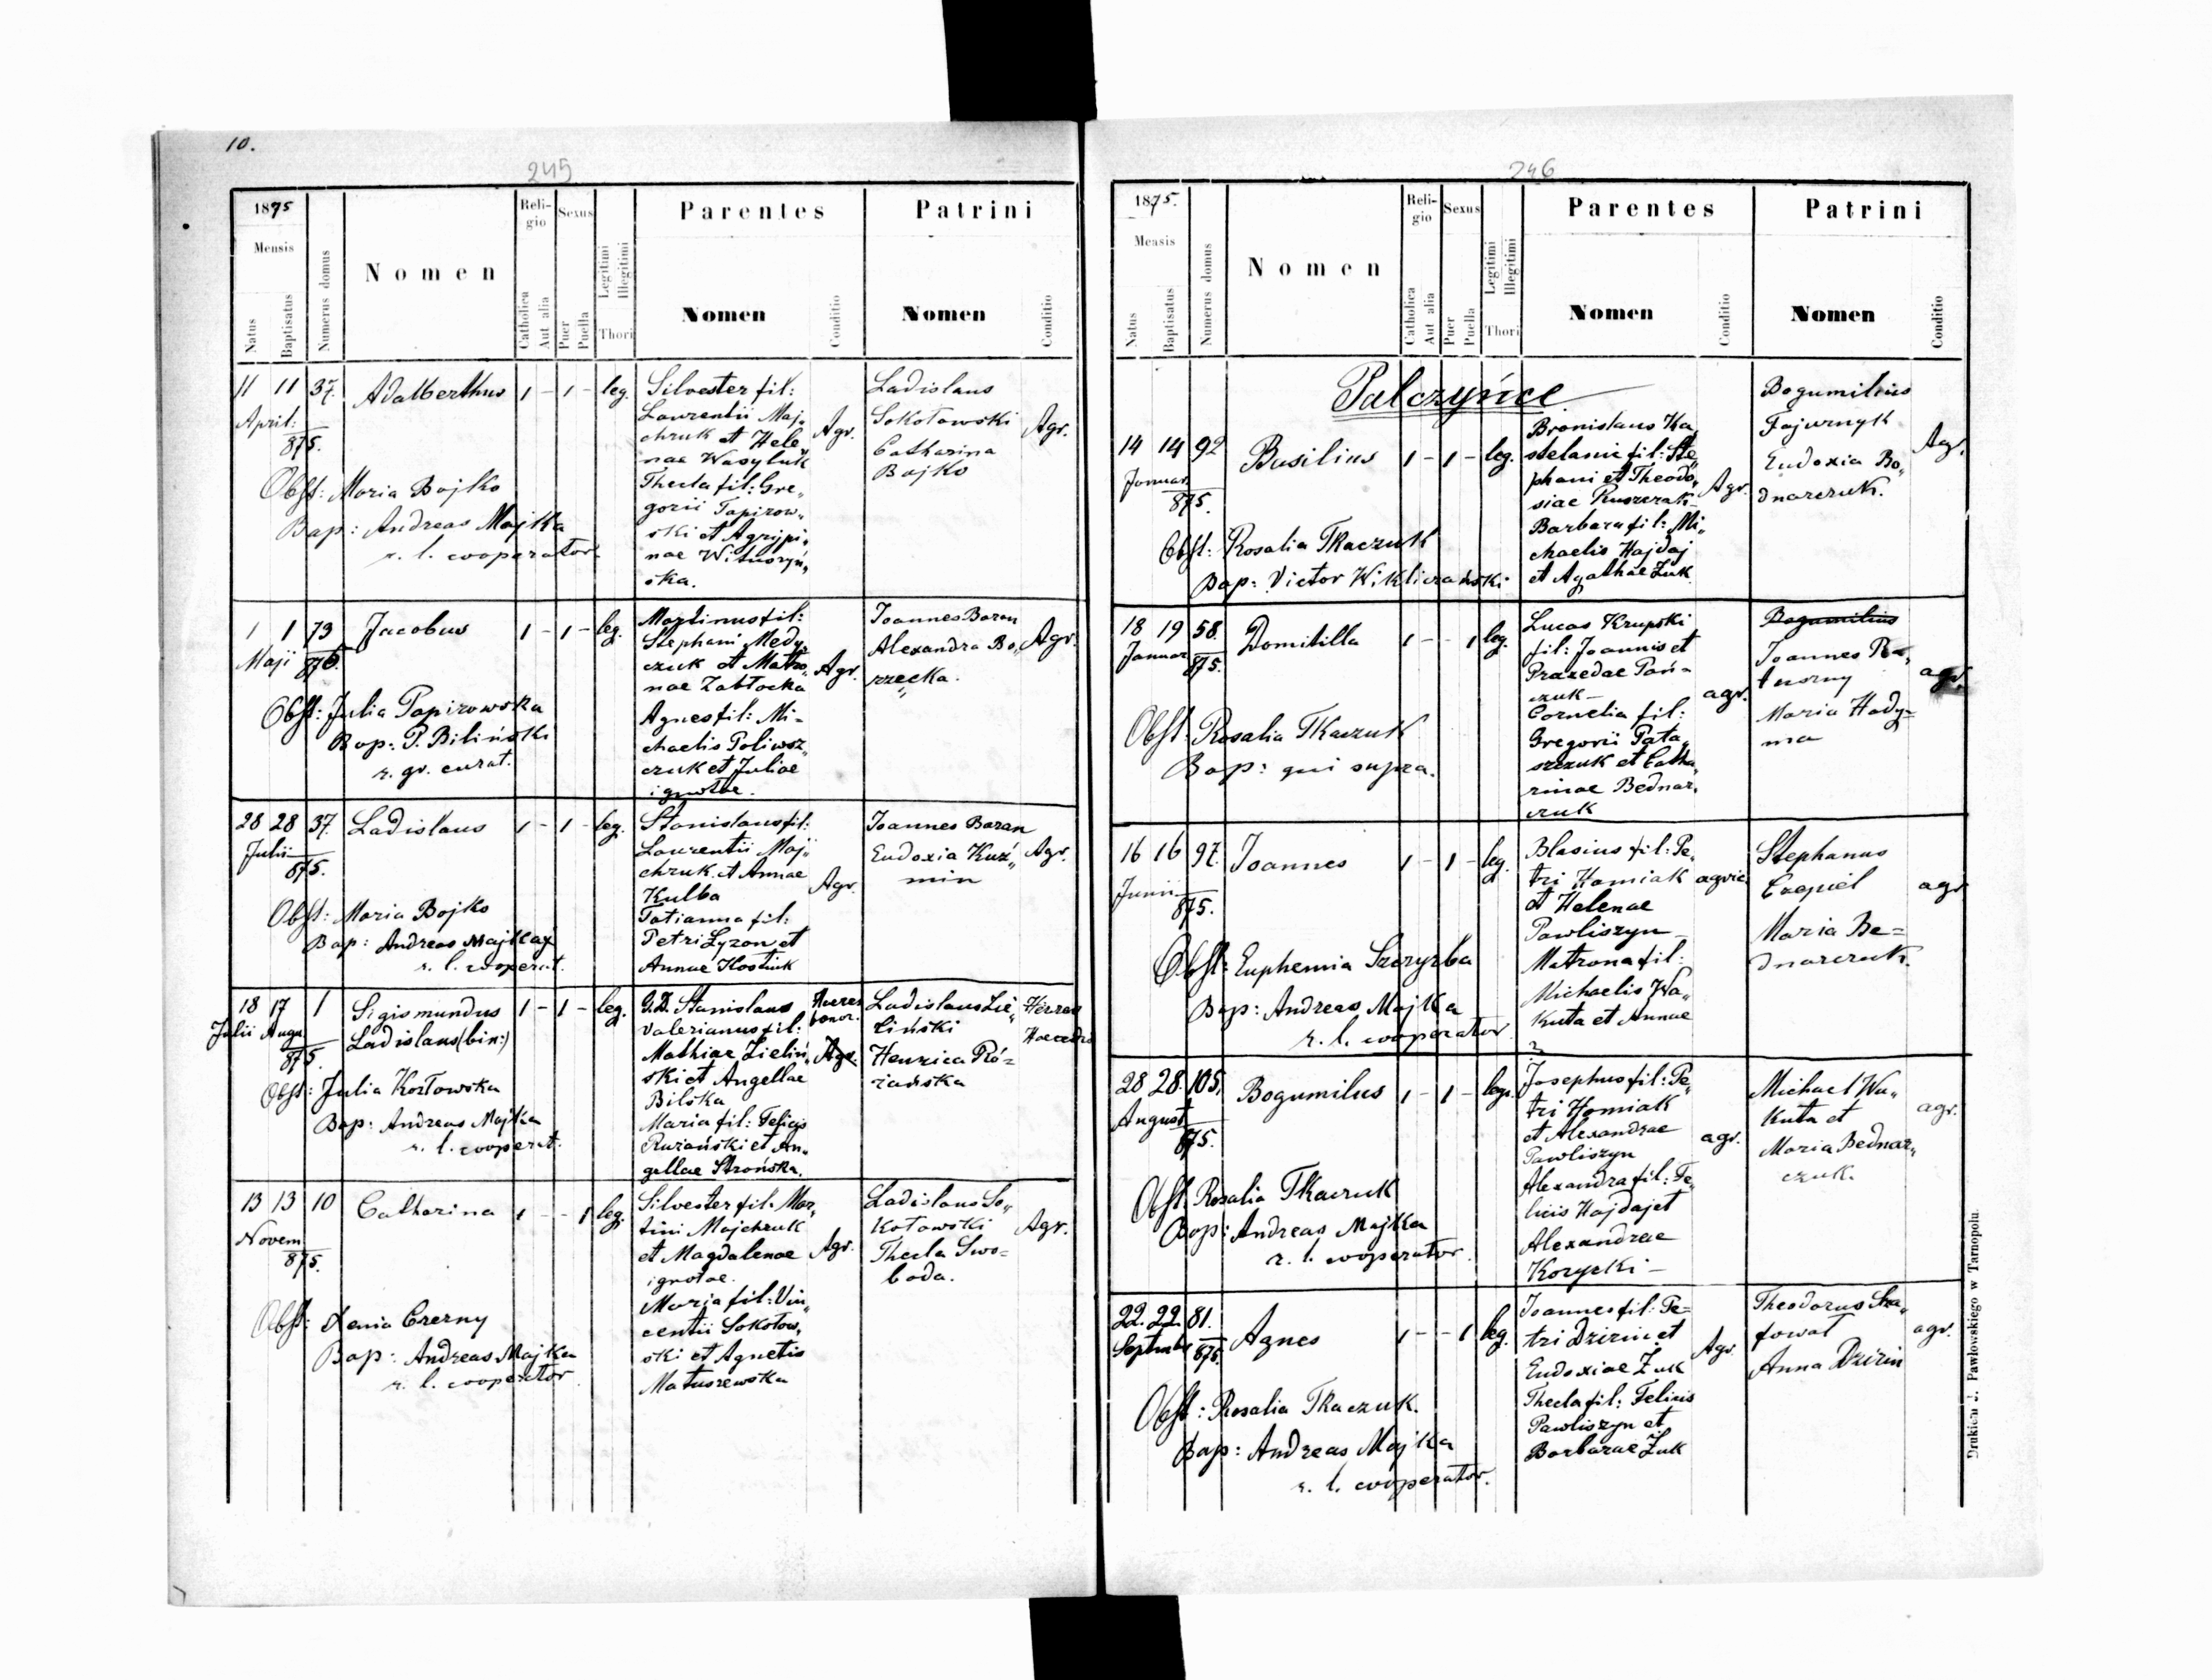 10.
245
1875
Mensis
Natus
Baptisatus
Numerus domus
Nomen
Reli-
gio
Catholica
Aut alia
Sexus
Puer
Puella
Legitimi
Illegitimi
Thori
Parentes
Nomen
Conditio
Patrini
Nomen
Conditio
11 11 37. Adalberthus 1 - 1 - leg.
April:
875.
Obst: Maria Bojko
Bap: Andreas Majka
r. l. cooperator
Silvester fil:
Laurentii Maj„
chruk et Hele„
nae Wasyluk
Thecla fil: Gre„
gorii Papirow„
ski et Agrippi„
nae
ska.
Agr.
Ladislaus
Sokołowski
Catharina
Bojko
Agr.
1 1 73 Jacobus 1 - 1 - leg.
Maji
875.
Obst: Julia Papirowska
Bap: P. Biliński
r. gr. curat.
Martinus fil:
Stephani Medy„
czuk et Matro„
nae Zabłocka
Agnes fil: Mi-
chaelis Poliwsz„
czuk et Juliae
ignotae.
Agr.
Joannes Baran
Alexandra Bo„
rzecka.
Agr.
28 28 37. Ladislaus 1 - 1 - leg.
Julii
875.
Obst: Maria Bojko
Bap: Andreas Majka
r. l. cooperat.
Stanislaus fil:
Laurentii Maj„
chruk et Annae
Kulba
Tatianna fil:
Petri Łyzon et
Annae Kostiuk
Agr.
Joannes Baran
Eudoxia Kuź„
min
Agr.
18 17 1 Sigismundus 1 - 1 - leg.
Julii Augu
875.
Ladislaus (bin:)
Obst: Julia Kozłowska
Bap: Andreas Majka
r. l. cooperat.
G.D. Stanislaus
Valerianus fil:
Mathiae Zieliń„
ski et Angellae
Bilska
Maria fil: Felicis
Rużański et An„
gellae Strońska.
Haeres
bonor.
Agr.
Ladislaus Zie„
liński
Henrica Ró-
żańska
13 13 10 Catharina 1 - - 1 leg.
Novem
875.
Obst: Xenia Czerny
Bap: Andreas Majka
r. l. cooperator
Silvester fil: Mar„
tini Majchruk
et Magdalenae
ignotae.
Maria fil: Vin„
centii Sokołow„
ski et Agnetis
Matuszewska
Agr.
Ladislaus So„
kołowski
Thecla Swo-
boda.
Agr.
246
1875.
Mensis
Natus
Baptisatus
Numerus domus
Nomen
Reli-
gio
Catholica
Aut alia
Sexus
Puer
Puella
Legitimi
Illegitimi
Thori
Parentes
Nomen
Conditio
Patrini
Nomen
Conditio
Palczyńce
14 14 92 Basilius 1 - 1 - leg.
Januar.
875.
Obst: Rosalia Tkaczuk
Bap: Victor
Bronislaus Ka„
stelanic fil: Ste„
phani et Theodo„
siae Kuszczak
Barbara fil: Mi„
chaelis Hajdaj
et Agathae Żuk
Agr.
Bogumilius
Fajurnyk
Eudoxia Bo„
dnarczuk.
Agr.
18 19 58. Domitilla 1 - - 1 leg.
Januar
875.
Obst: Rosalia Tkaczuk
Bap: qui supra.
Lucas Krupski
fil: Joannis et
Praxedae Pań-
czuk -
Cornelia fil:
Gregorii Pata„
szczuk et Catha„
rinae Bednar„
czuk
agr.
Bogumilius
Joannes Ra„
tuszny
Maria Hady-
ma
agr.
16 16 97. Joannes 1 - 1 - leg.
Junii
875.
Obst: Euphemia Szczyrba
Bap: Andreas Majka
r. l. cooperator
Blasius fil: Pe„
tri Homiak
et Helenae
Pawliszyn -
Matrona fil:
Michaelis Wa„
kuta et Annae
?
agric.
Stephanus
Czepiel
Maria Be=
dnarczuk.
agr
28 28. 105. Bogumilus 1 - 1 - leg.
August
875.
Obst: Rosalia Tkaczuk
Bap: Andreas Majka
r. l. cooperator
Josephus fil: Pe„
tri Homiak
et Alexandrae
Pawliszyn
Alexandra fil: Fe„
licis Hajdaj et
Alexandrae
Korycki -
agr.
Michael Wa„
kuta et
Maria Bednar„
czuk.
agr.
22. 22. 81. Agnes 1 - - 1 leg.
Septembr 875.
Obst: Rosalia Tkaczuk.
Bap: Andreas Majka
r. l. cooperator.
Joannes fil: Pe=
tri Dzizin et
Eudoxiae Żuk
Thecla fil: Felicis
Pawliszyn et
Barbarae Żuk
Agr.
Theodorus Sza„
fował
Anna Dzizin
agr.
Drukiem J. Pawłowskiego w Tarnopolu.